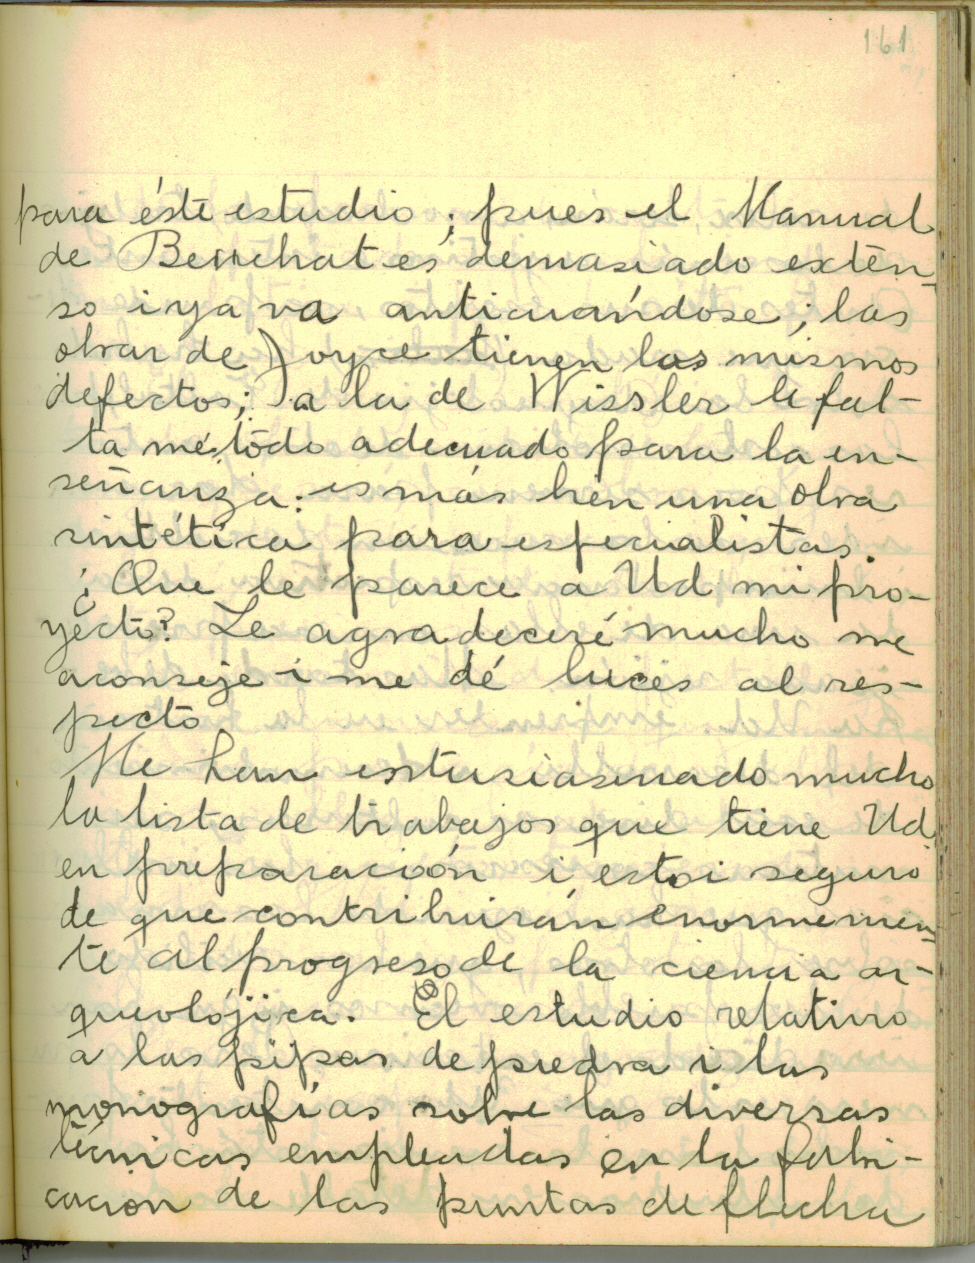 161
para éste estudio; pues el Manual
de Beuchat es demasiado exten-
so i ya va anticuándose; las
obras de Joyce tienen los mismos
defectos; a la de Wissler le fal-
ta método adecuado para la en-
señanza: es más bien una obra
sintética para especialistas.
¿Que le parece a Ud mi pro-
yecto? Le agradeceré mucho me
aconseje i me dé luces al res-
pecto
Me han entusiasmado mucho
la lista de trabajos que tiene Ud.
en preparación i estoi seguro
de que contribuirán enormemen-
te al progreso de la ciencia ar-
queolójica. El estudio relativo
a las pipas de piedra i las
monografías sobre las diversas
técnicas empleadas en la fabri-
cación de las puntas de flecha